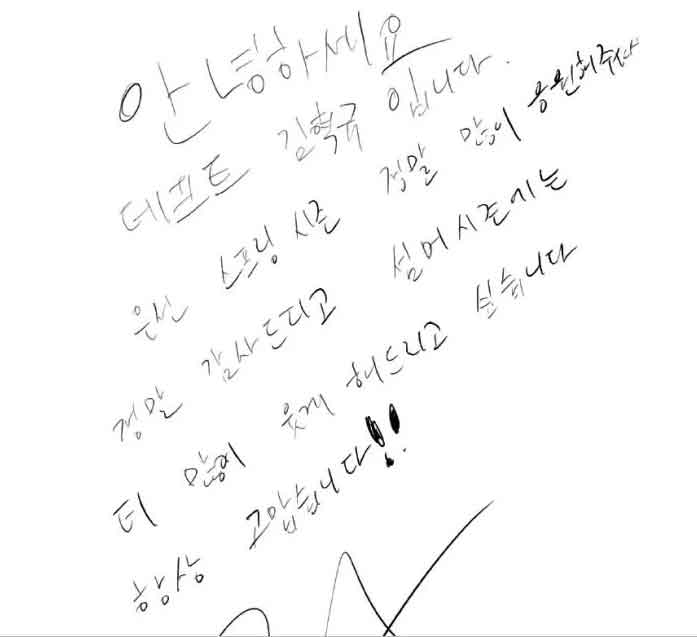 안녕하세요
데프트 김혁규 입니다.
우선 스프링 시즌 정말 많이 응원해주셔서
정말 감사드리고 섬머시즌에는
더 많이 웃게 해드리고 싶습니다
항상 고맙습니다!!